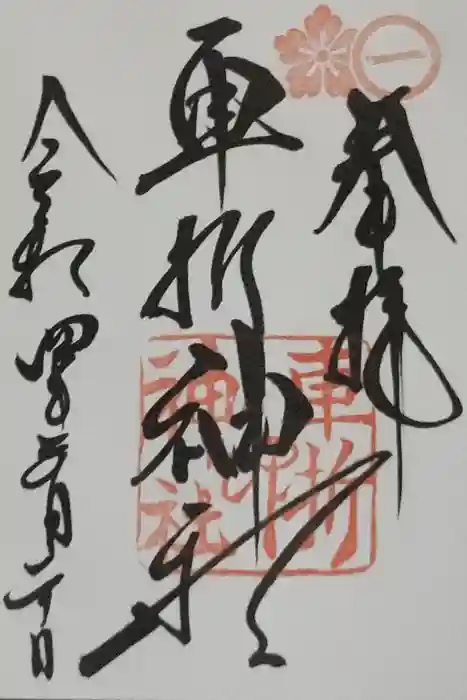 一
奉拝
車折神社
車折
神社
令和四年五月二十日